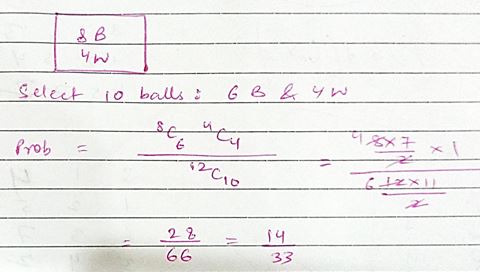 8 B
4 W
Select 10 balls : 6 B & 4 W
Prob = ⁸C₆ ⁴C₄ / ¹²C₁₀ = (4 8×7 / 2 × 1) / (6 12×11 / 2)
= 28/66 = 14/33